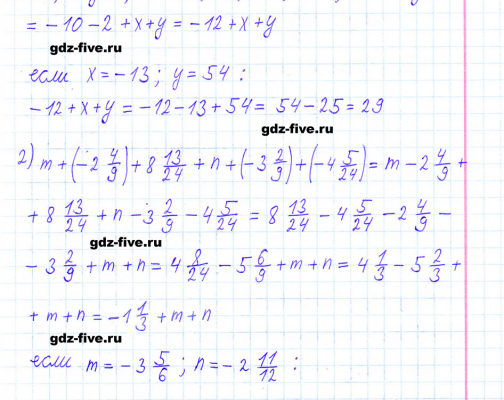 = -10 - 2 + x + y = -12 + x + y
gdz-five.ru
если x = -13; y = 54 :
-12 + x + y = -12 - 13 + 54 = 54 - 25 = 29
gdz-five.ru
2) m + (-2 4/9) + 8 13/24 + n + (-3 2/9) + (-4 5/24) = m - 2 4/9 +
+ 8 13/24 + n - 3 2/9 - 4 5/24 = 8 13/24 - 4 5/24 - 2 4/9 -
gdz-five.ru
- 3 2/9 + m + n = 4 8/24 - 5 6/9 + m + n = 4 1/3 - 5 2/3 +
+ m + n = -1 1/3 + m + n
gdz-five.ru
если m = -3 5/6 ; n = -2 11/12 :